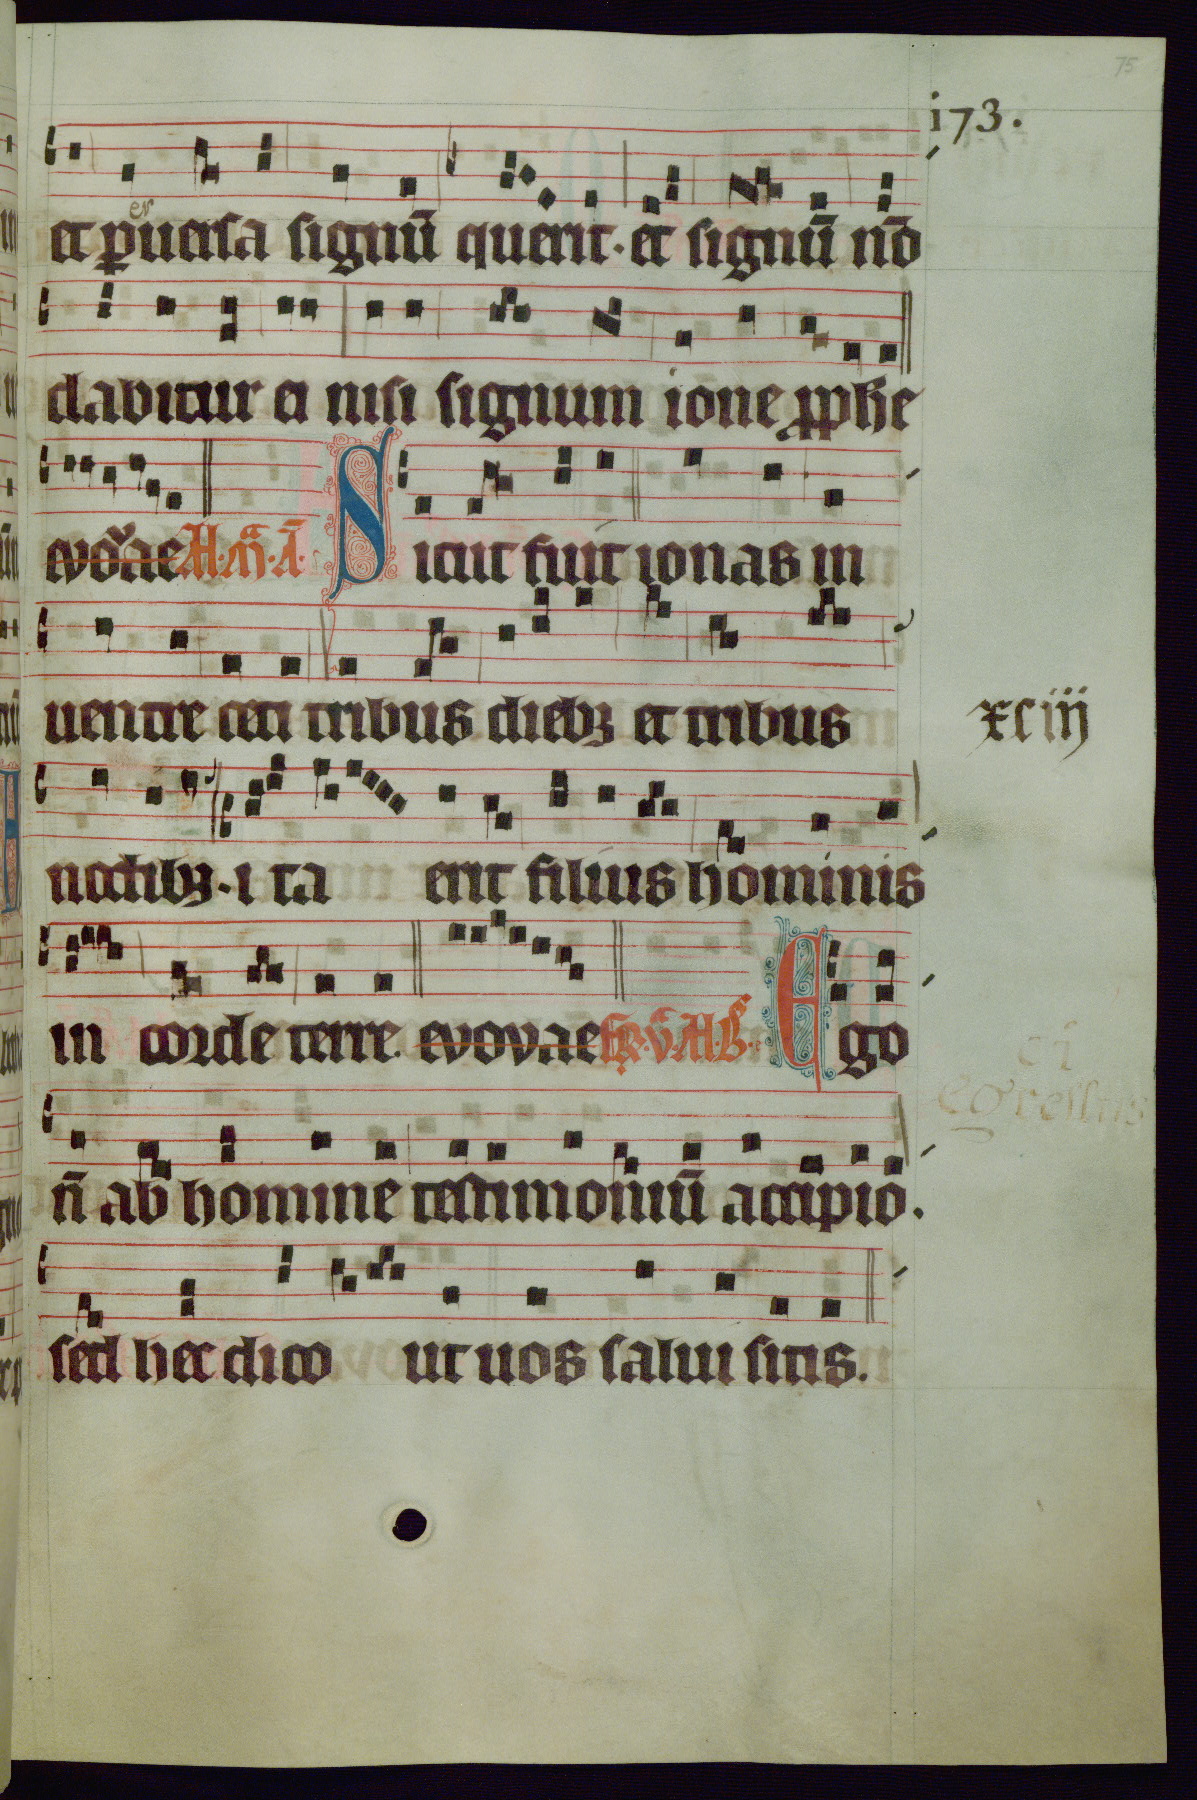 75
i73.
et ꝑuersa signū querit· et signū nō
er
dabitur ei nisi signum ione ꝓphe
euouae Ad M̄ A̅ Sicut fuit ionas in
uentre ceti tribus dieb⁊ et tribus
xciij
noctib⁊· i ta erit filius hominis
in corde terre. euouae Ego
ei
egressus
n̄ ab homine testimoniū accipio.
sed hec dico ut uos salui sitis.